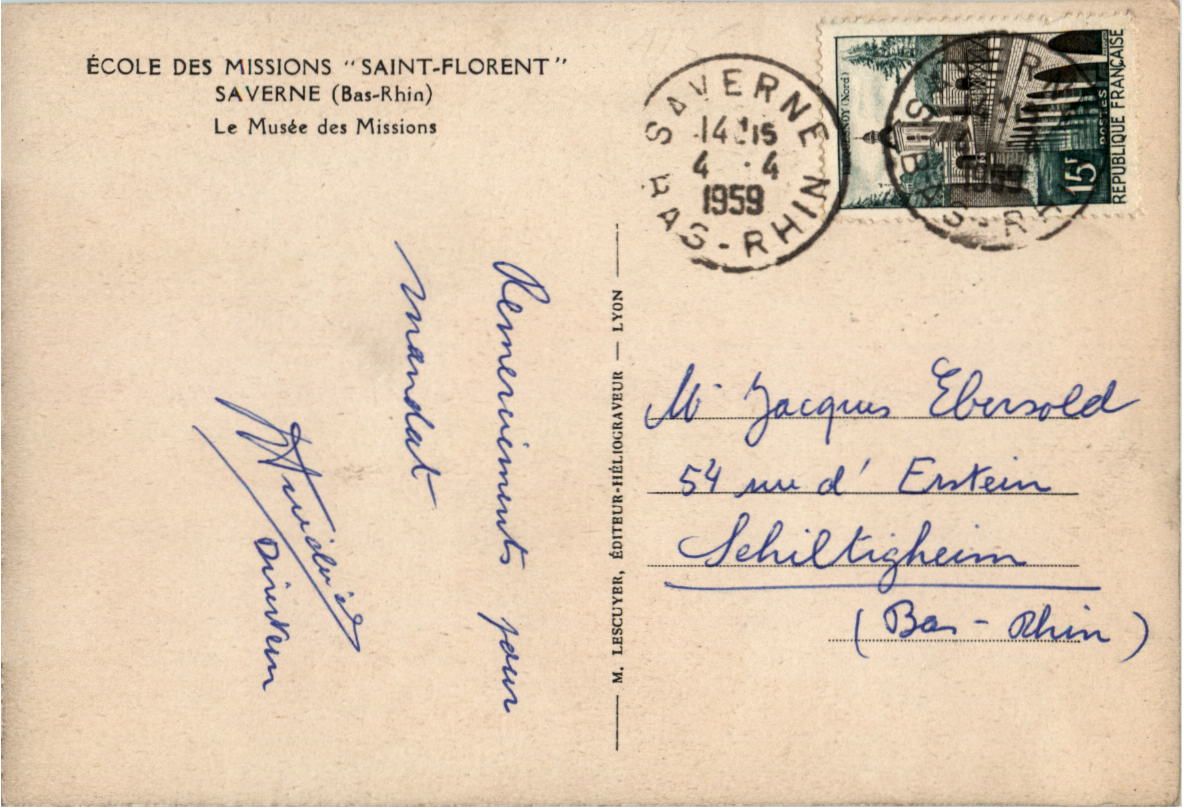 ÉCOLE DES MISSIONS "SAINT-FLORENT"
SAVERNE (Bas-Rhin)
Le Musée des Missions
SAVERNE
14 15
4 · 4
1959
BAS-RHIN
(Nord)
POSTES
15F
RÉPUBLIQUE FRANÇAISE
Remerciements pour
mandat
Directeur
M. LESCUYER, ÉDITEUR-HÉLIOGRAVEUR — LYON
Mr Jacques Ebersold
54 rue d' Erstein
Schiltigheim
(Bas-Rhin)